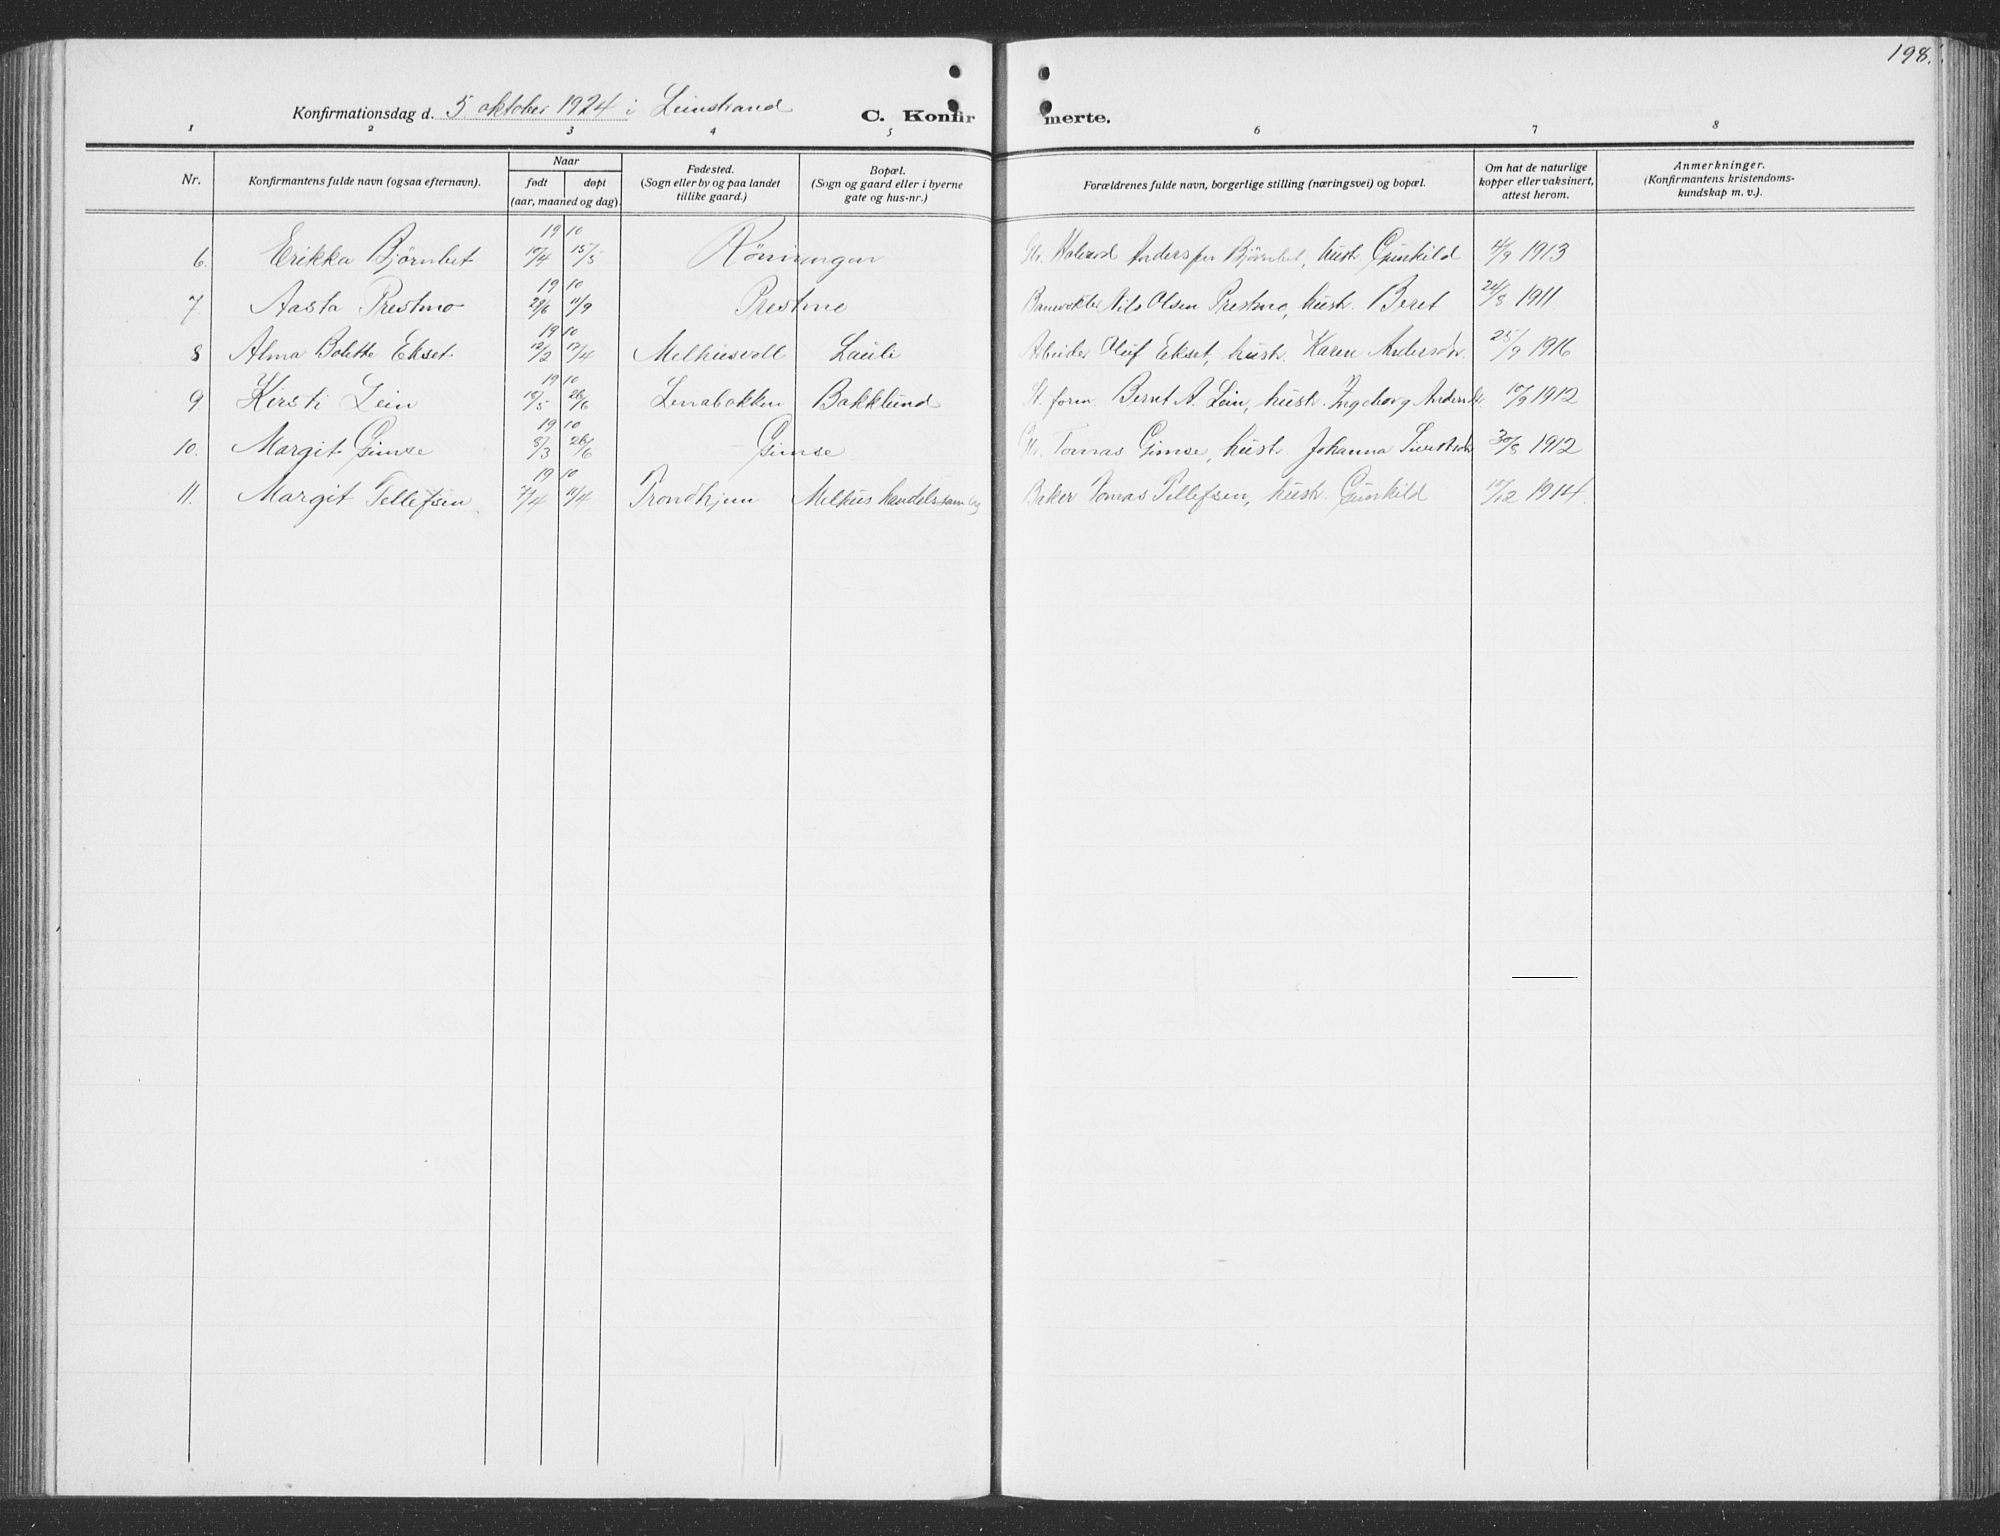 198.
Konfirmationsdag d. 5 oktober 1924 i Leinstrand C. Konfirmerte.
1 2 3 4 5 6 7 8
Nr. Konfirmantens fulde navn (ogsaa efternavn). Naar født døpt (aar, maaned og dag). Fødested. (Sogn eller by og paa landet tillike gaard.) Bopæl. (Sogn og gaard eller i byerne gate og hus-nr.) Forældrenes fulde navn, borgerlige stilling (næringsvei) og bopæl. Om hat de naturlige kopper eller vaksinert, attest herom. Anmerkninger. (Konfirmantens kristendoms-kundskap m. v.).
6. Erikka Bjørnbet 1910 10/4 15/5 Rönningen Anderssen Bjørnbet, hustr. Gunhild 4/9 1913
7. Aasta Prestmo 1910 28/6 11/9 Prestmo Banevokter Nils Olsen Prestmo, hustr. Beret 24/8 1911
8 Alma Bolette Ekset 1910 12/2 17/4 Melhusvoll Laule Arbeider Oluf Ekset, hustr. Karen Andersdr. 25/9 1916
9 Kirsti Lein 1910 18/5 26/6 Lenabakken Bakklund St. form Bernt A. Lein, hustr. Ingeborg Andersdr. 17/9 1912
10. Margit Gimse 1910 8/3 26/6 Gimse Gr. Tomas Gimse, hustr. Johanna Sivertsdr 30/8 1912
11. Margit Tellefsen 1910 7/4 11/4 Trondhjem Melhus handelssamlag Baker Tomas Tellefsen, hustr. Gunhild 17/12 1914.